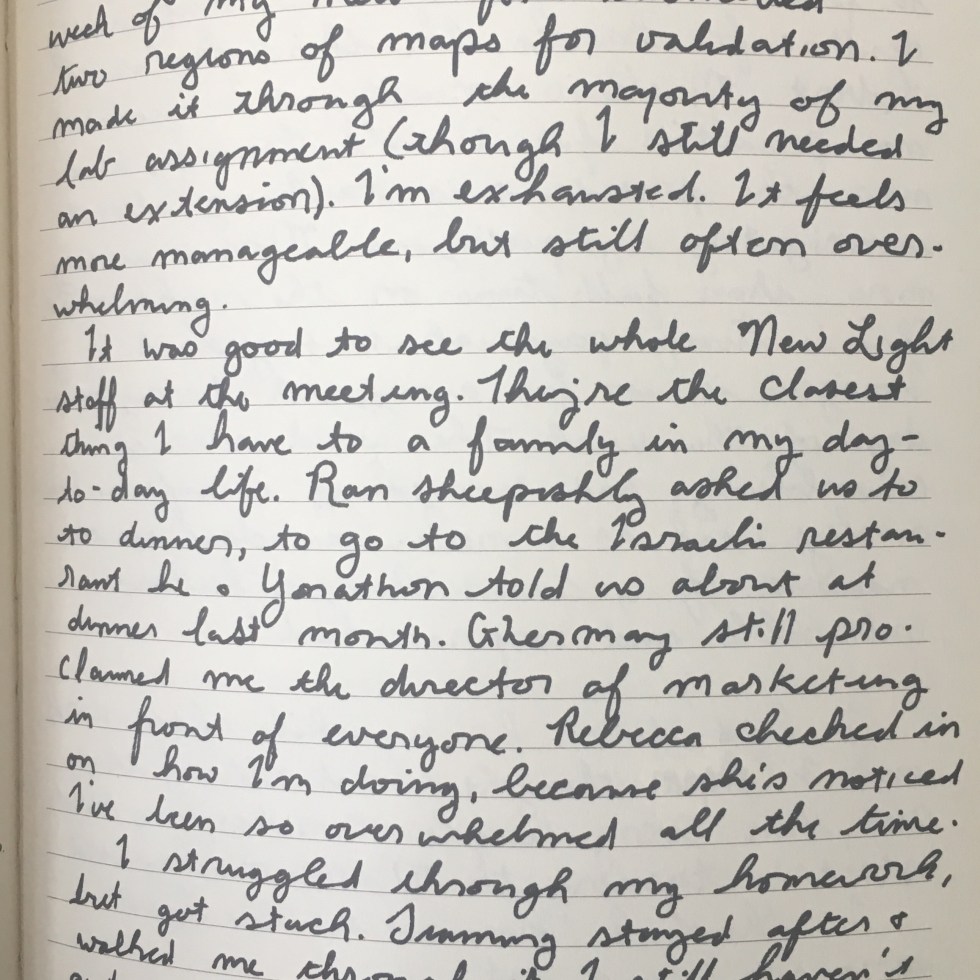 week of my new
two regions of maps for validation. I
made it through the majority of my
lab assignment (though I still needed
an extension). I'm exhausted. It feels
more manageable, but still often over-
whelming.
It was good to see the whole New Light
staff at the meeting. They're the closest
thing I have to a family in my day-
to-day life. Ran sheepishly asked us to
to dinner, to go to the Israeli restau-
rant he • Yonathon told us about at
dinner last month. Ghermay still pro-
claimed me the director of marketing
in front of everyone. Rebecca checked in
on how I'm doing, because she's noticed
I've been so overwhelmed all the time.
I struggled through my homework,
but got stuck. stayed after &
walked me through it. I still haven't